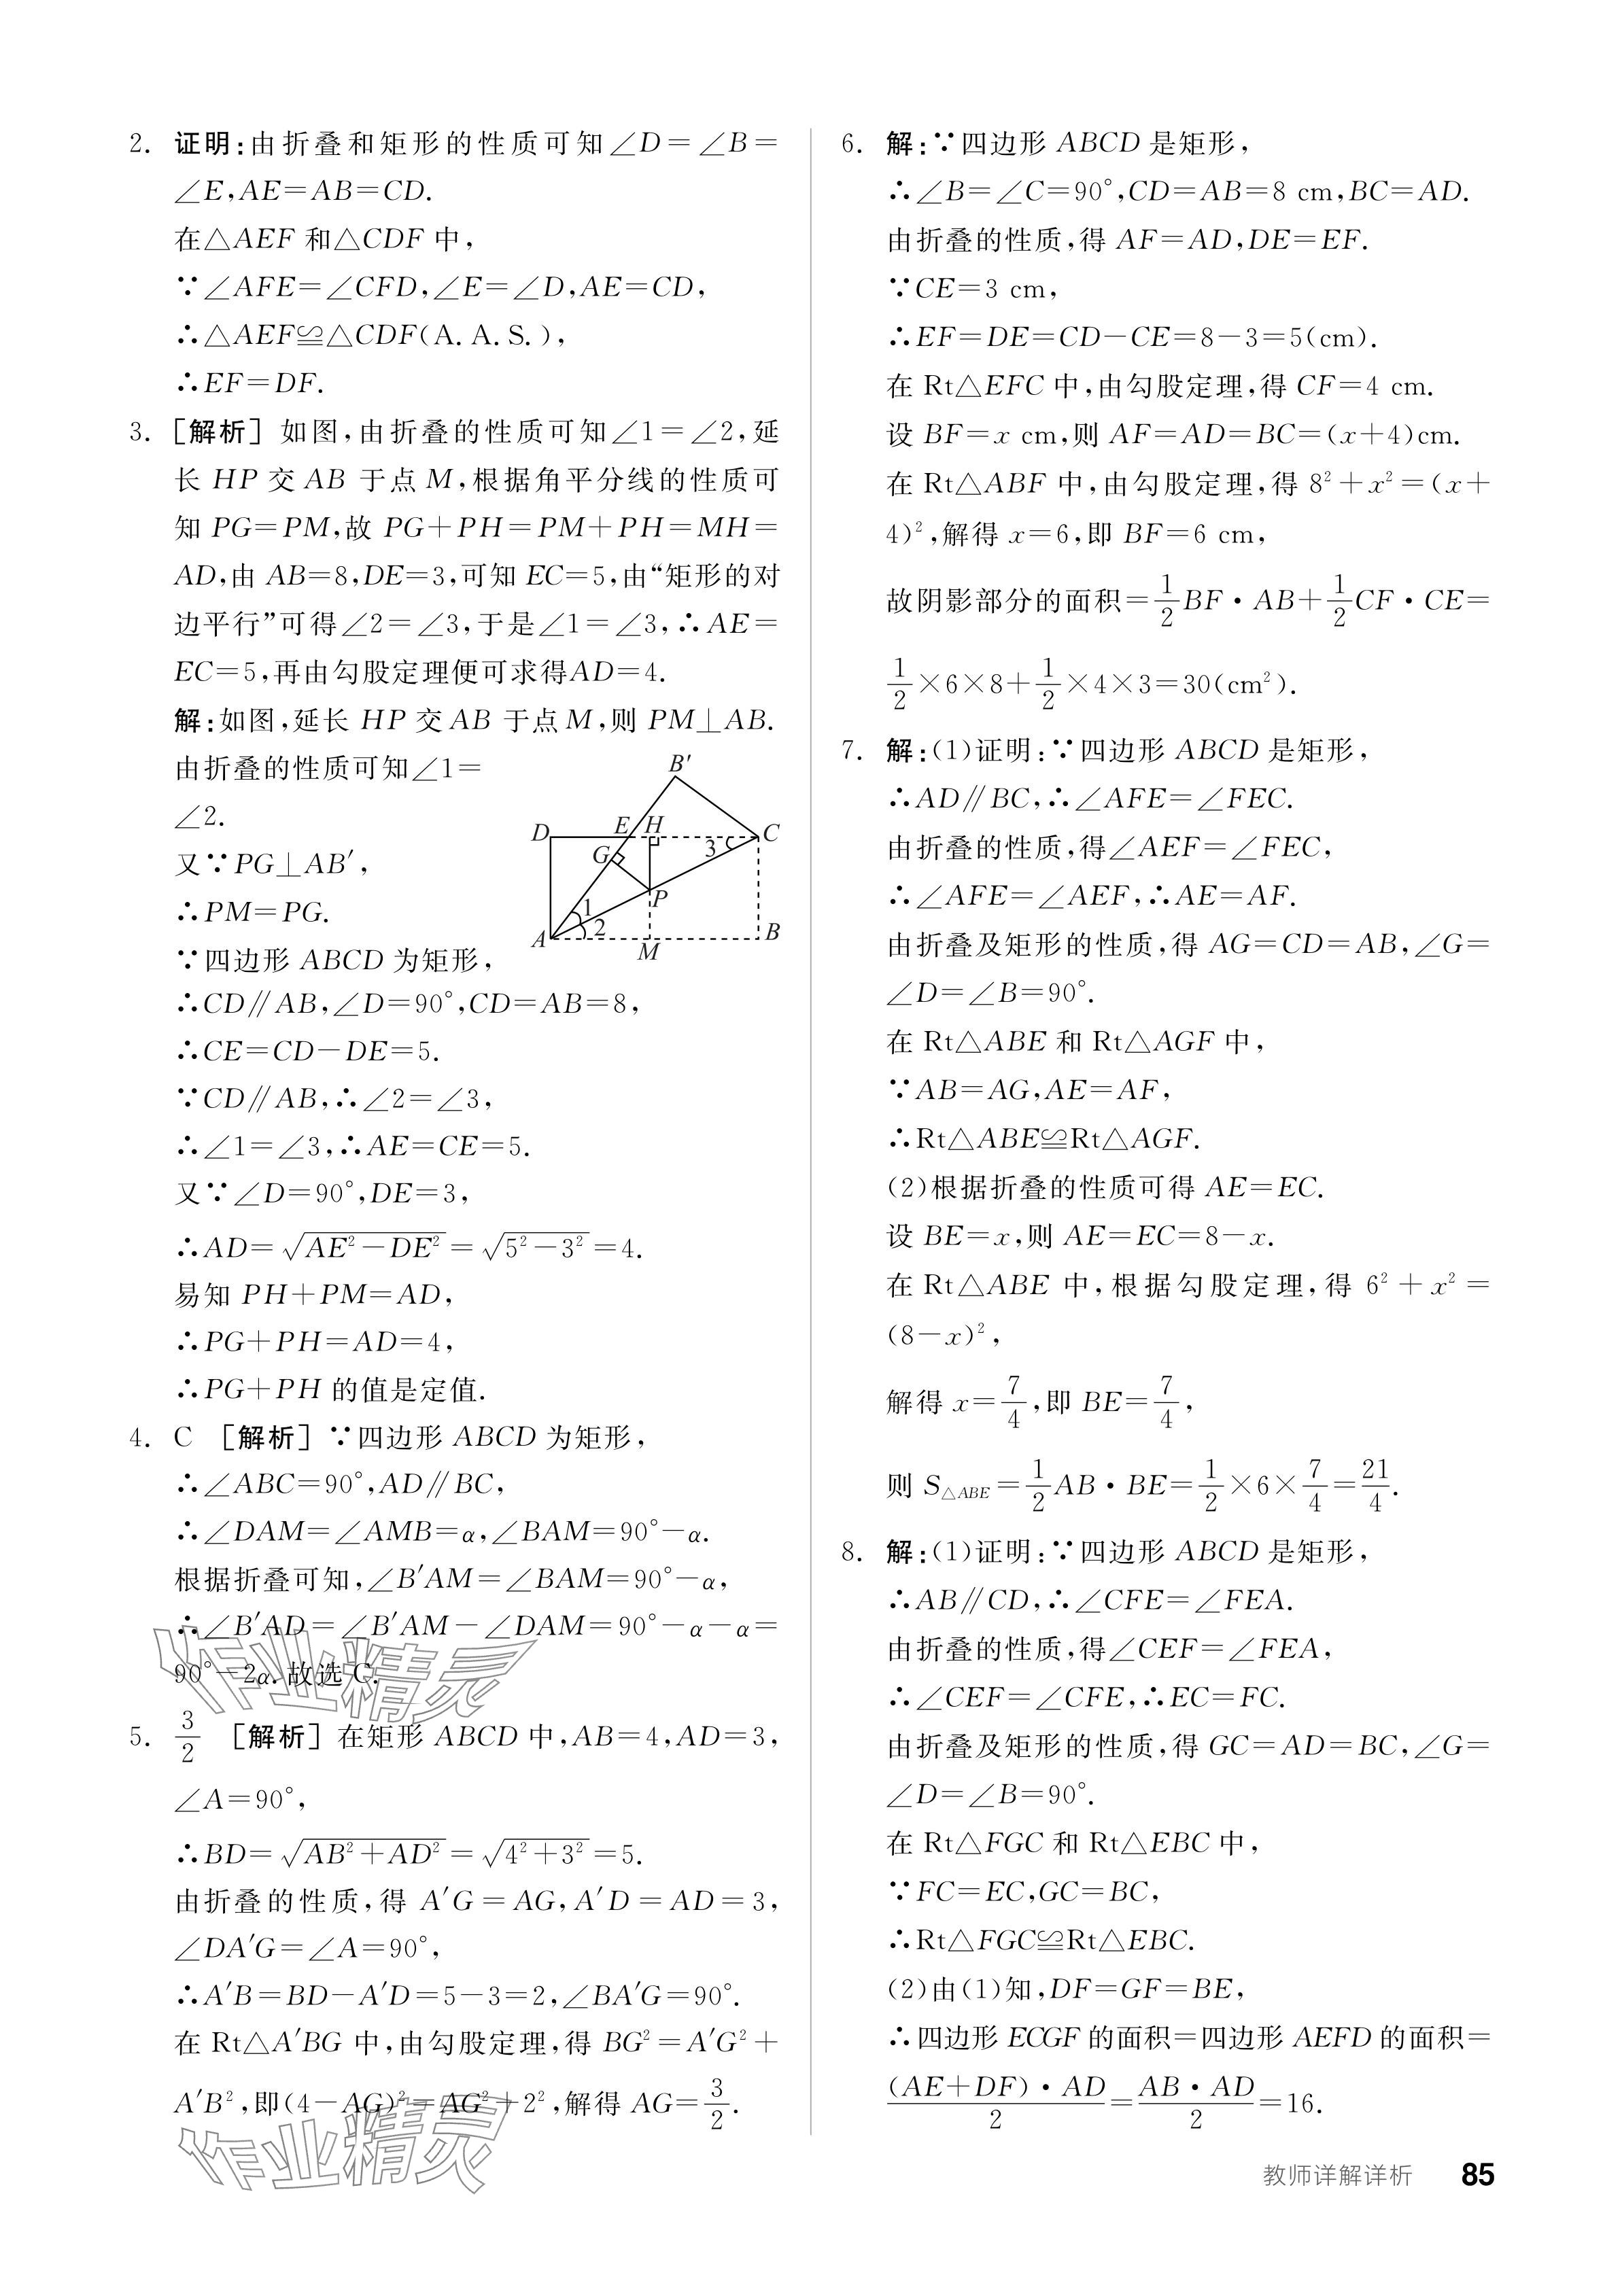 2. 证明:由折叠和矩形的性质可知∠D=∠B=
∠E,AE=AB=CD.
在△AEF 和△CDF 中,
∵∠AFE=∠CFD,∠E=∠D,AE=CD,
∴△AEF≌△CDF(A.A.S.),
∴EF=DF.
3. [解析] 如图,由折叠的性质可知∠1=∠2,延
长 HP 交 AB 于点 M,根据角平分线的性质可
知 PG=PM,故 PG+PH=PM+PH=MH=
AD,由 AB=8,DE=3,可知 EC=5,由“矩形的对
边平行”可得∠2=∠3,于是∠1=∠3,∴AE=
EC=5,再由勾股定理便可求得AD=4.
解:如图,延长 HP 交 AB 于点 M,则 PM⊥AB.
由折叠的性质可知∠1=
∠2.
又∵PG⊥AB′,
∴PM=PG.
∵四边形 ABCD 为矩形,
B′
D E H C
G 3
P
1
A 2 B
M
∴CD∥AB,∠D=90°,CD=AB=8,
∴CE=CD-DE=5.
∵CD∥AB,∴∠2=∠3,
∴∠1=∠3,∴AE=CE=5.
又∵∠D=90°,DE=3,
∴AD=√(AE²-DE²)=√(5²-3²)=4.
易知 PH+PM=AD,
∴PG+PH=AD=4,
∴PG+PH 的值是定值.
4. C [解析] ∵四边形 ABCD 为矩形,
∴∠ABC=90°,AD∥BC,
∴∠DAM=∠AMB=α,∠BAM=90°-α.
根据折叠可知,∠B′AM=∠BAM=90°-α,
∴∠B′AD=∠B′AM-∠DAM=90°-α-α=
90°-2α.故选 C.
5. 3/2 [解析] 在矩形 ABCD 中,AB=4,AD=3,
∠A=90°,
∴BD=√(AB²+AD²)=√(4²+3²)=5.
由折叠的性质,得 A′G=AG,A′D=AD=3,
∠DA′G=∠A=90°,
∴A′B=BD-A′D=5-3=2,∠BA′G=90°.
在 Rt△A′BG 中,由勾股定理,得 BG²=A′G²+
A′B²,即(4-AG)²=AG²+2²,解得 AG=3/2.
6. 解:∵四边形 ABCD 是矩形,
∴∠B=∠C=90°,CD=AB=8 cm,BC=AD.
由折叠的性质,得 AF=AD,DE=EF.
∵CE=3 cm,
∴EF=DE=CD-CE=8-3=5(cm).
在 Rt△EFC 中,由勾股定理,得 CF=4 cm.
设 BF=x cm,则 AF=AD=BC=(x+4)cm.
在 Rt△ABF 中,由勾股定理,得 8²+x²=(x+
4)²,解得 x=6,即 BF=6 cm,
故阴影部分的面积=1/2BF·AB+1/2CF·CE=
1/2×6×8+1/2×4×3=30(cm²).
7. 解:(1)证明:∵四边形 ABCD 是矩形,
∴AD∥BC,∴∠AFE=∠FEC.
由折叠的性质,得∠AEF=∠FEC,
∴∠AFE=∠AEF,∴AE=AF.
由折叠及矩形的性质,得 AG=CD=AB,∠G=
∠D=∠B=90°.
在 Rt△ABE 和 Rt△AGF 中,
∵AB=AG,AE=AF,
∴Rt△ABE≌Rt△AGF.
(2)根据折叠的性质可得 AE=EC.
设 BE=x,则 AE=EC=8-x.
在 Rt△ABE 中,根据勾股定理,得 6²+x²=
(8-x)²,
解得 x=7/4,即 BE=7/4,
则 S△ABE=1/2AB·BE=1/2×6×7/4=21/4.
8. 解:(1)证明:∵四边形 ABCD 是矩形,
∴AB∥CD,∴∠CFE=∠FEA.
由折叠的性质,得∠CEF=∠FEA,
∴∠CEF=∠CFE,∴EC=FC.
由折叠及矩形的性质,得 GC=AD=BC,∠G=
∠D=∠B=90°.
在 Rt△FGC 和 Rt△EBC 中,
∵FC=EC,GC=BC,
∴Rt△FGC≌Rt△EBC.
(2)由(1)知,DF=GF=BE,
∴四边形 ECGF 的面积=四边形 AEFD 的面积=
(AE+DF)·AD/2=AB·AD/2=16.
作业精灵
作业精灵
教师详解详析 85